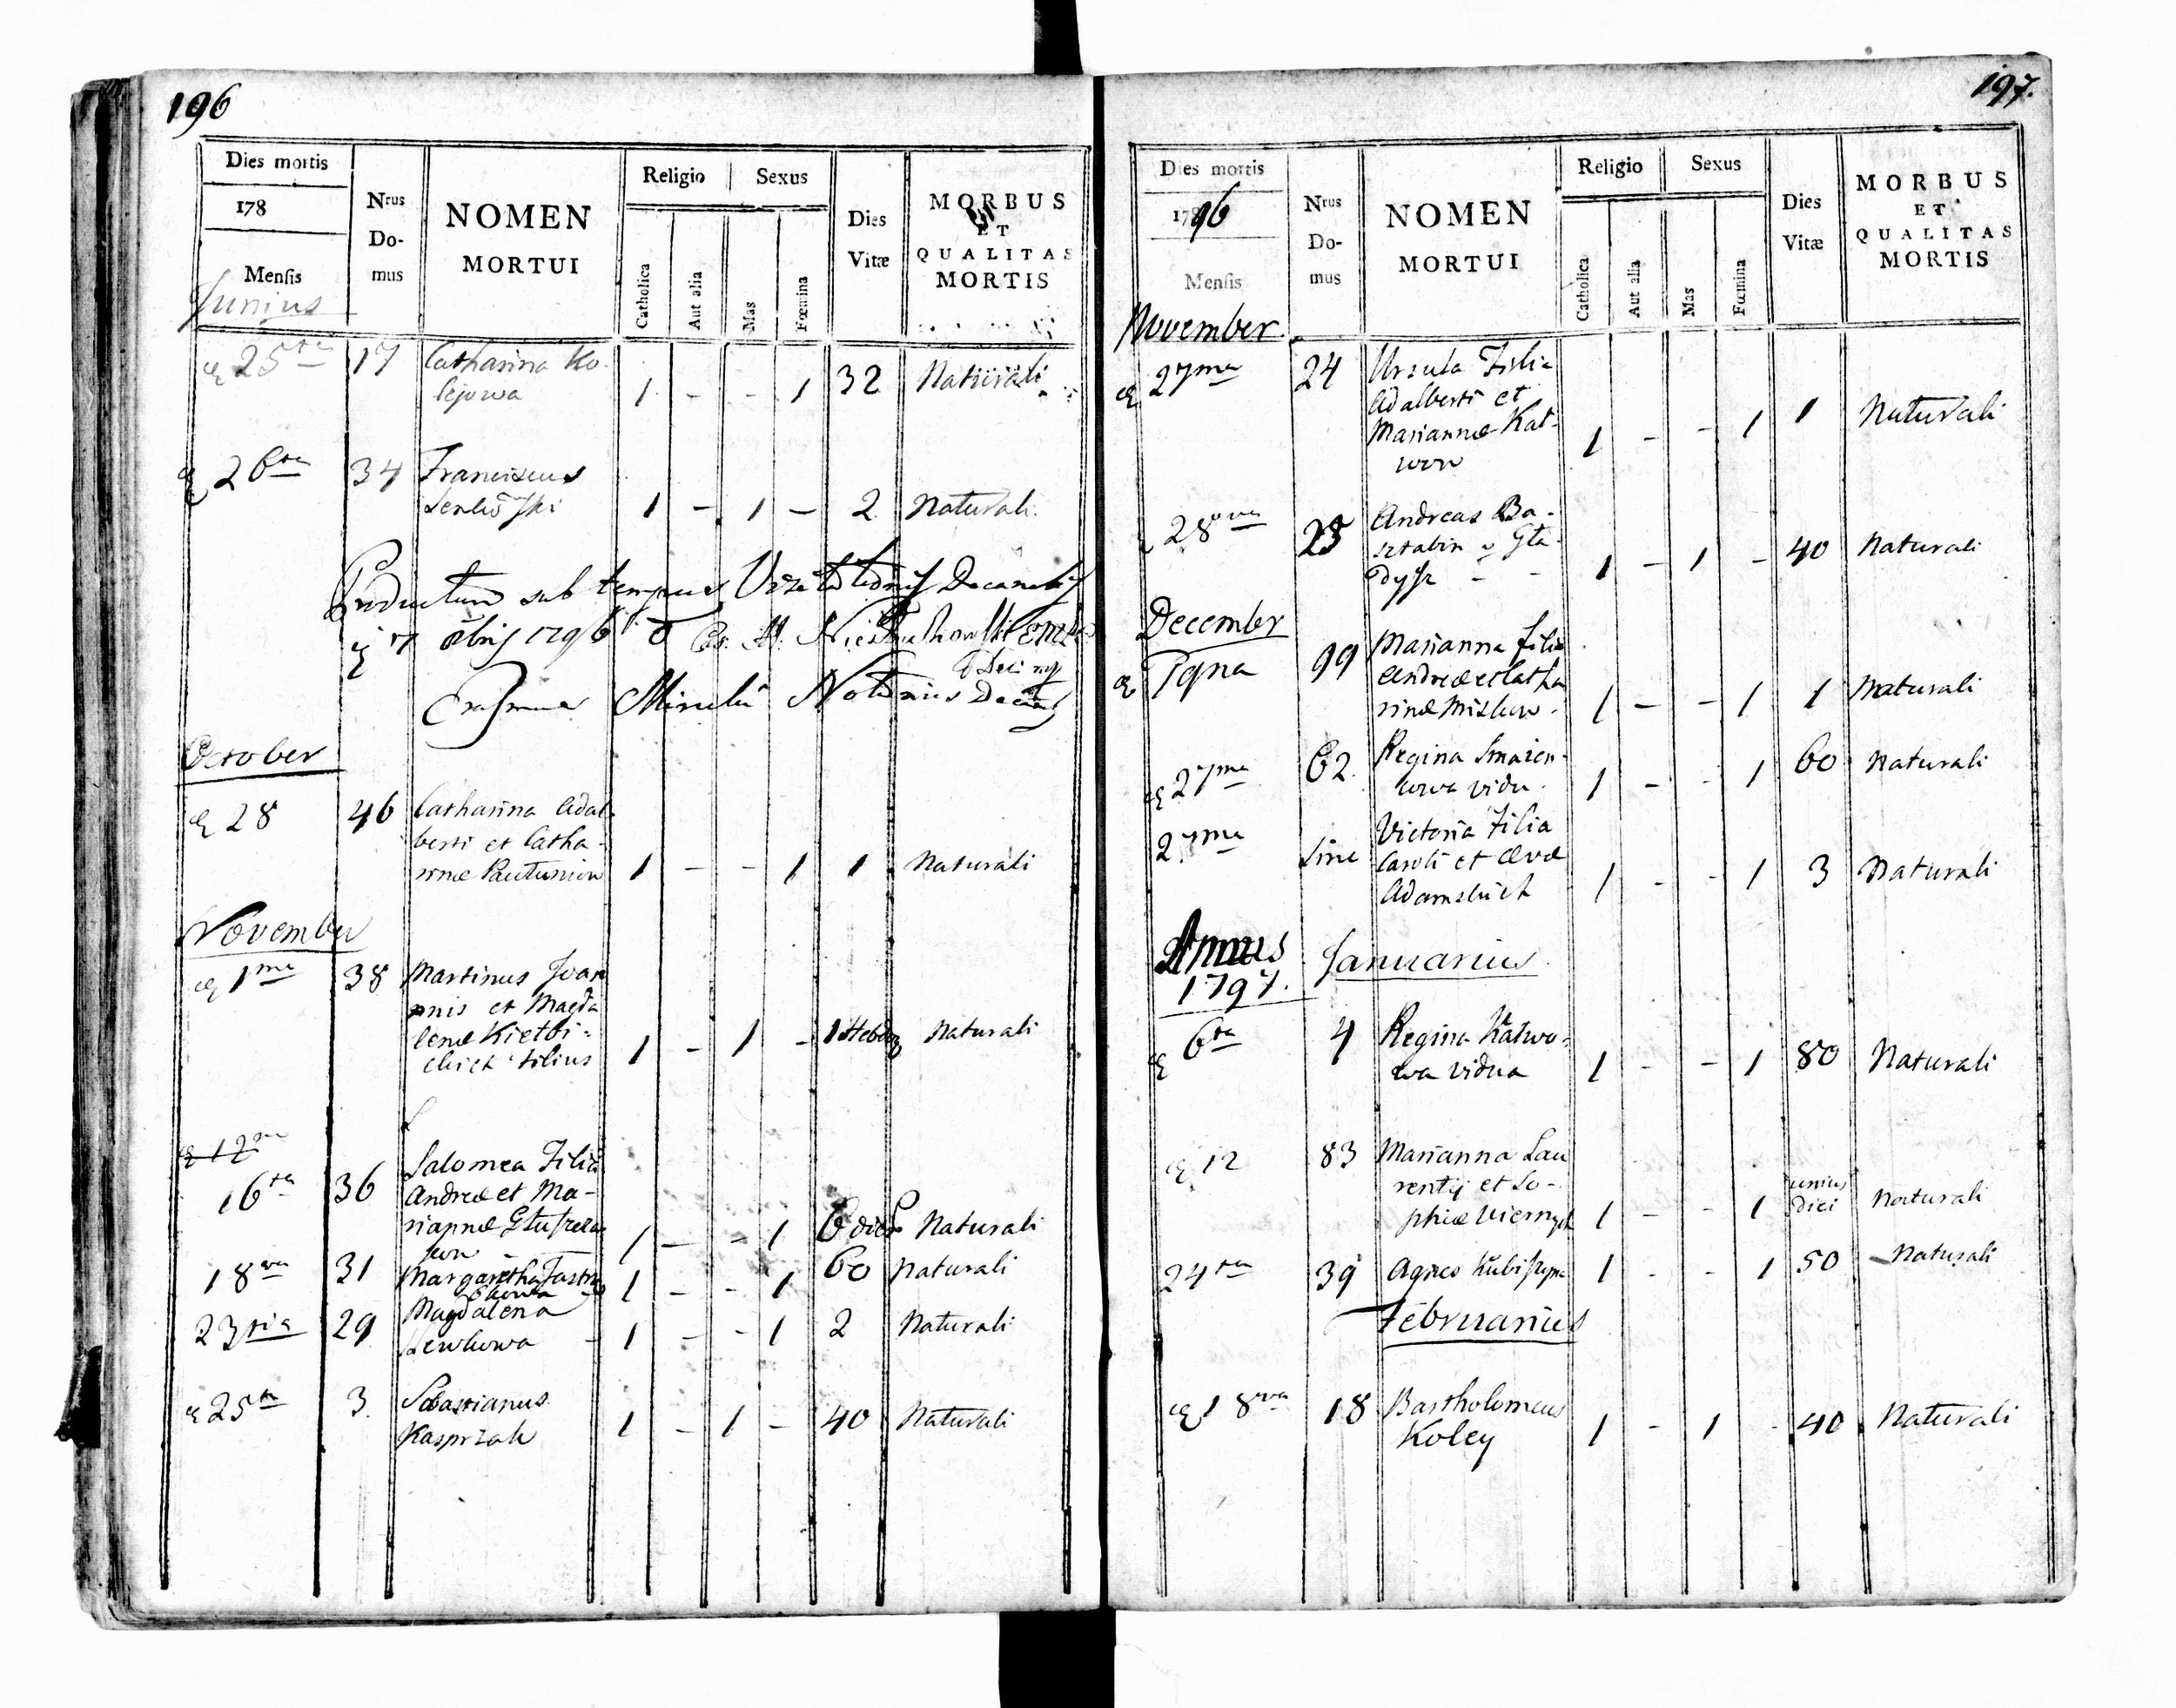 196
Dies mortis
178
Mensis
Junius
Nrus
Do-
mus
NOMEN
MORTUI
Religio
Sexus
Catholica
Aut alia
Mas
Fœmina
Dies
Vitæ
MORBUS
ET
QUALITAS
MORTIS
25ta 17 Catharina Ko-
lejowa 1 - - 1 32 Naturali
26ta 34 Franciscus
1 - 1 - 2 Naturali
Productum sub tempus Decanalis
1796
Notarius
October
28 46 Catharina Adal-
berti et Catha-
rinæ 1 - - 1 1 Naturali
November
1ma 38 Martinus Joan
nnis et Magda
lenæ Kietbi-
chich filius 1 - 1 - 1 Hebdo Naturali
16ta 36 Salomea Filia
Andreæ et Ma-
riannæ 1 - - 1 6 dies Naturali
18va 31 Margaretha 1 - - 1 60 Naturali
23tia 29 Magdalena
1 - - 1 2 Naturali
25ta 3 Sebastianus
Kasprzak 1 - 1 - 40 Naturali
197.
Dies mortis
1796
Mensis
November
Nrus
Do-
mus
NOMEN
MORTUI
Religio
Sexus
Catholica
Aut alia
Mas
Fœmina
Dies
Vitæ
MORBUS
ET
QUALITAS
MORTIS
27ma 24 Ursula Filia
Adalberti et
Mariannæ Kat-
wow 1 - - 1 1 Naturali
28ava 23 Andreas Ba-
sztabin v Gła-
dysz - - 1 - 1 - 40 Naturali
December
99 Marianna filia
Andreæ et Catha
rinæ 1 - - 1 1 Naturali
27ma 62 Regina
1 - - 1 60 Naturali
27ma Sine Victoria Filia
Caroli et Evæ
1 - - 1 3 Naturali
Annus Januarius
1797.
6ta 4 Regina Katwo-
wa vidua 1 - - 1 80 Naturali
12 83 Marianna Lau
rentij et So-
phiæ 1 - - 1 unius diei Naturali
24ta 39 Agnes 1 - - 1 50 Naturali
Februarius
18va 18 Bartholomeus
Koley 1 - 1 - 40 Naturali